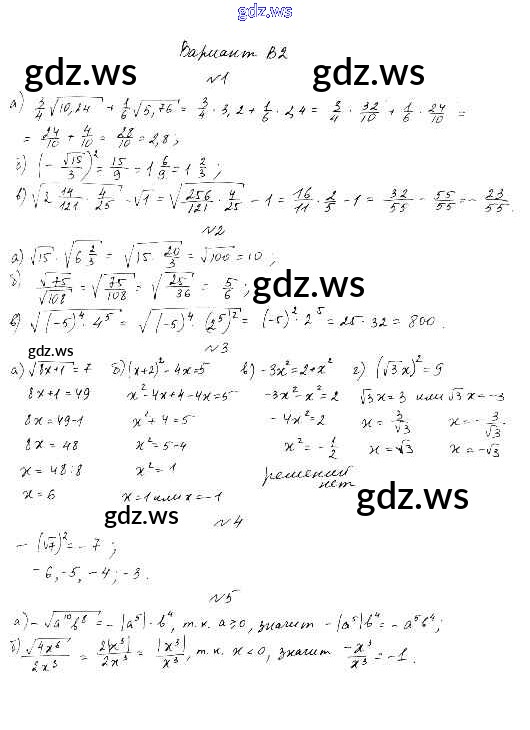 gdz.ws
Вариант В2
gdz.ws gdz.ws
№1
а) 3/4 √10,24 + 1/6 √5,76 = 3/4 · 3,2 + 1/6 · 2,4 = 3/4 · 32/10 + 1/6 · 24/10 =
= 24/10 + 4/10 = 28/10 = 2,8;
б) (- √15/3)² = 15/9 = 1 6/9 = 1 2/3;
в) √(2 14/121 · 4/25) - √1 = √(256/121 · 4/25) - 1 = 16/11 · 2/5 - 1 = 32/55 - 55/55 = - 23/55.
№2
а) √15 · √(6 2/3) = √(15 · 20/3) = √100 = 10;
б) √75/√108 = √(75/108) = √(25/36) = 5/6;
gdz.ws
в) √((-5)⁴ · 4⁵) = √((-5)⁴ · (2⁵)²) = (-5)² · 2⁵ = 25 · 32 = 800.
gdz.ws
№3
а) √(8x+1) = 7 б) (x+2)² - 4x = 5 в) -3x² = 2 + x² г) (√3 x)² = 9
8x+1 = 49 x² - 4x + 4 - 4x = 5 -3x² - x² = 2 √3 x = 3 или √3 x = -3
8x = 49-1 x² + 4 = 5 -4x² = 2 x = 3/√3 x = - 3/√3.
8x = 48 x² = 5-4 x² = - 1/2 x = √3 x = -√3
x = 48:8 x² = 1 решений
нет
x = 6 x = 1 или x = -1
gdz.ws
gdz.ws
№4
- (√7)² = -7;
-6, -5, -4; -3.
№5
а) - √(a¹⁰b⁸) = - |a⁵| · b⁴, т.к. a ≥ 0, значит - |a⁵|b⁴ = - a⁵b⁴;
б) √(4x⁶)/2x³ = 2|x³|/2x³ = |x³|/x³, т.к. x < 0, значит -x³/x³ = -1.